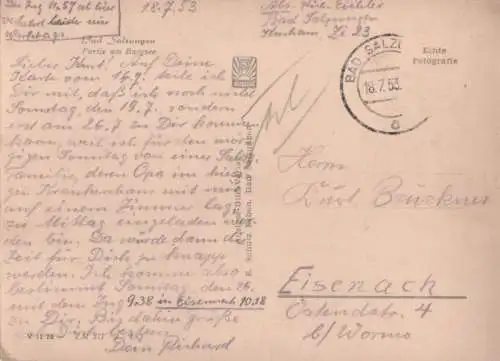 Der Zug 11.57 ab hier
verkehrt leider nur
Werktags.
18.7.53
Abs. Rich. Eichler
Bad Salzungen
Kurheim, Zi 23
Bad Salzungen
Partie am Burgsee
Lieber Kurt! Auf Deine
Karte vom 16.7. teile ich
Dir mit, daß ich noch nicht
Sonntag, den 19.7. sondern
erst am 26.7 zu Dir kommen
kann, weil ich für den mor-
gigen Sonntag von einer Salz.
Familie, deren Opa im hie-
gen Krankenhaus mit mir
auf einem Zimmer lag
zu Mittag eingeladen wor-
den bin. Da würde dann die
Zeit für Dich zu knapp
werden. Ich komme also
bestimmt Sonntag, den 26.
mit dem Zug 9.38 in Eisenach 10.18
zu Dir. Bis dahin große
Dich bestens
Dein Richard
V 11 28
Echte
Fotografie
BAD SALZ
18.7.53
Herrn
Kurt Brückner
Eisenach
Ostendstr. 4
b/ Worms